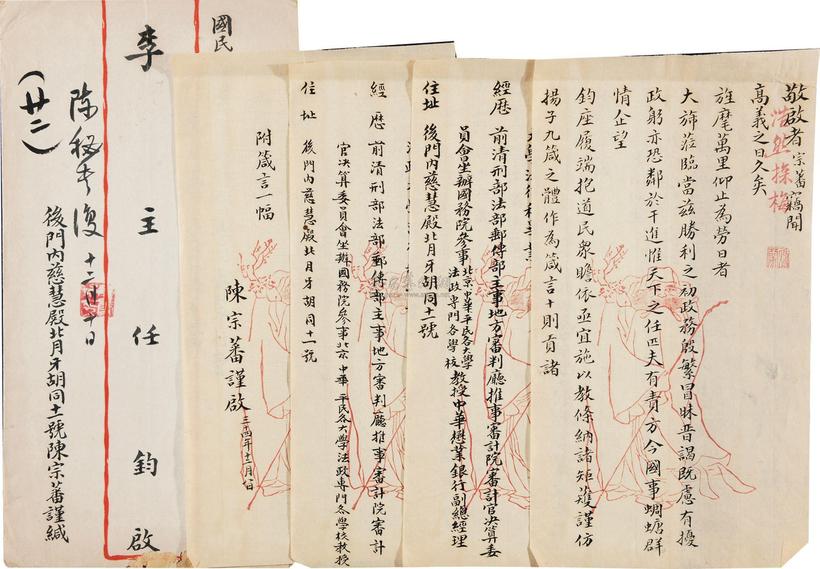 敬啟者宗蕃竊聞
高義之日久矣
旌麾萬里仰止為勞日者
大旆蒞臨當茲勝利之初政務殷繁冒昧晋謁既慮有擾
政躬亦恐鄰於干進惟天下之任匹夫有責方今國事蜩螗群
情企望
鈞座履端抱道民衆瞻依亟宜施以教條納諸矩矱謹仿
揚子九箴之體作為箴言十則貢諸
浩然探梅
經歷 前清刑部法部郵傳部主事地方審判廳推事審計院審計官決算委
員會坐辦國務院參事北京中華平民各大學法政專門各學校教授中華懋業銀行副總經理
住址 後門內慈慧殿北月牙胡同十一號
經歷 前清刑部法部郵傳部主事地方審判廳推事審計院審計
官決算委員會坐辦國務院參事北京中華平民各大學法政專門各學校教授
住址 後門內慈慧殿北月牙胡同十一號
附箴言一幅
陳宗蕃謹啟 三十四年十二月一日
國民
李主任鈞啟
後門內慈慧殿北月牙胡同十一號陳宗蕃謹緘
陳秘書復 十二月十日
(廿二)